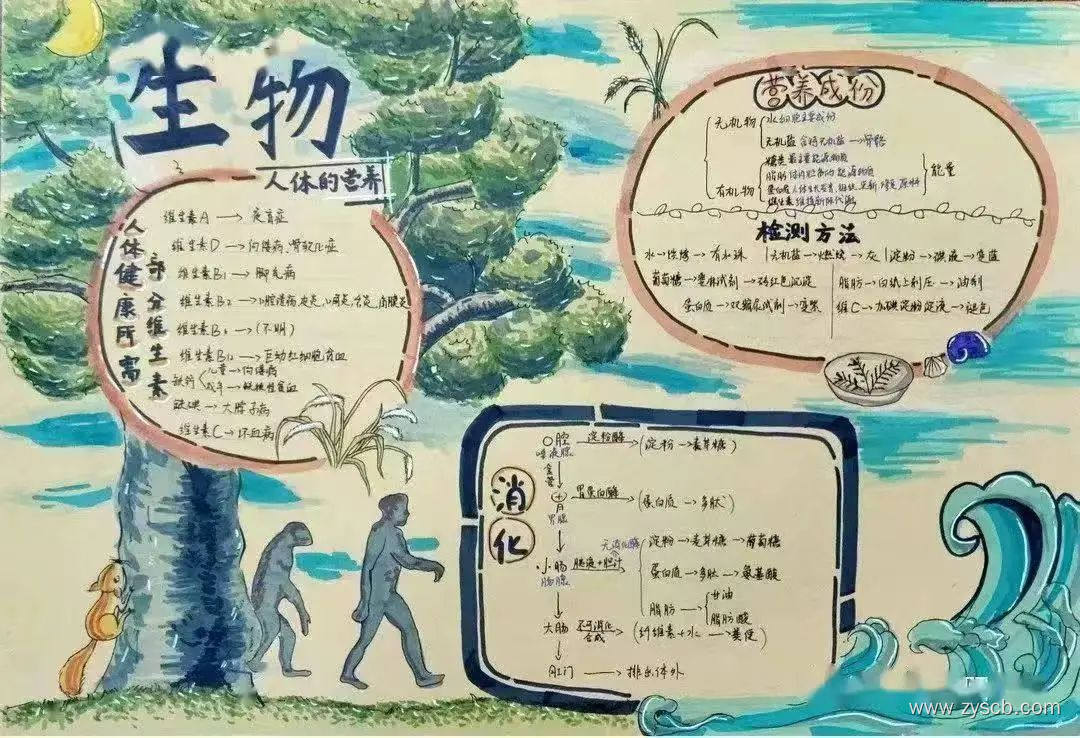 生物
人体的营养
人体健康所需
部分维生素
维生素A→夜盲症
维生素D→佝偻病,骨软化症
维生素B₁→脚气病
维生素B₂→口腔溃疡,皮炎,口角炎,舌炎,角膜炎
维生素B₆→(不明)
维生素B₁₂→巨幼红细胞贫血
缺钙
儿童→佝偻病
缺碘→大脖子病
维生素C→坏血病
营养成份
无机物
水 细胞主要成份
无机盐 含钙无机盐→骨骼
有机物
糖类 最主要能源物质
脂肪
蛋白质
维生素 维持新陈代谢
能量
检测方法
水→烘烤→有水珠
无机盐→燃烧→灰
淀粉→碘液→变蓝
葡萄糖→斐林试剂→砖红色沉淀
脂肪→白纸上剂压→油剂
蛋白质→双缩尿试剂→变紫
维C→加碘淀粉淀液→褪色
消化
口腔 淀粉酶→(淀粉→麦芽糖)
唾液腺
食管
胃 胃蛋白酶→(蛋白质→多肽)
胃腺
无消化酶
小肠 胰液+胆汁→
肠腺
淀粉→麦芽糖→葡萄糖
蛋白质→多肽→氨基酸
脂肪→
甘油
脂肪酸
大肠 不可消化合成→(纤维素+水→粪便)
肛门→排出体外
www.zyscb.com